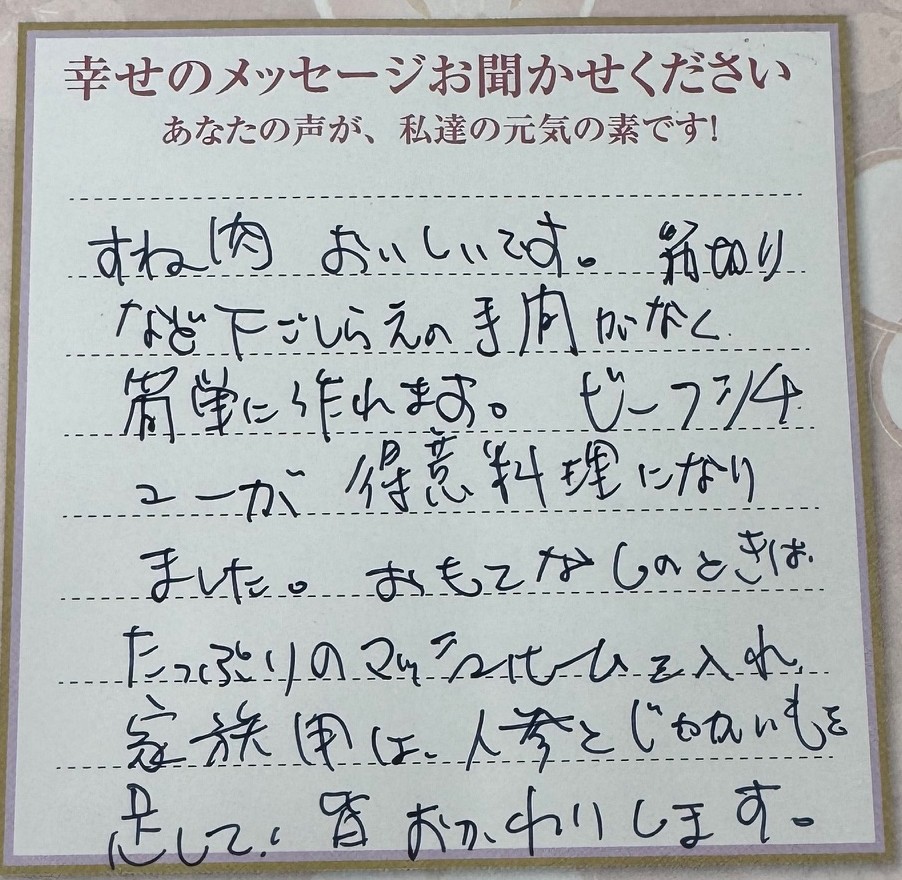 幸せのメッセージお聞かせください
あなたの声が、私達の元気の素です!
すね肉 おいしいです。 筋切り
など下ごしらえの手間がなく
簡単に作れます。 ビーフシチ
ューが 得意料理になり
ました。 おもてなしのときは、
たっぷりのマッシュルームを入れ、
家族用は、人参とじゃがいもを
足して、皆おかわりします。